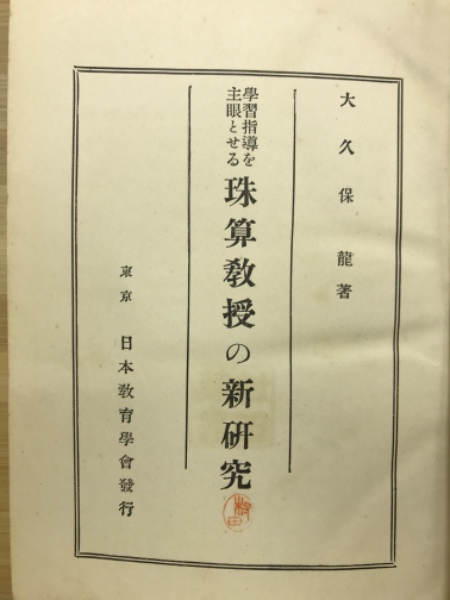 大久保龍著
學習指導を
主眼とせる
珠算教授の新研究
東京 日本教育學會發行